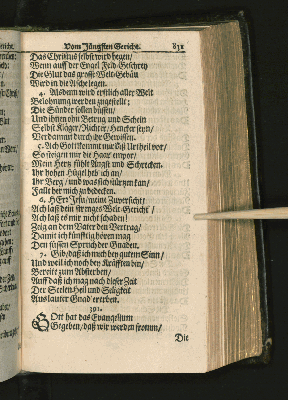 Vom Jüngsten Gericht. 831
Das Christus selbst wird hegen/
Wenn auff der Engel Feld-Geschrey
Die Glut das grosse Welt-Gebäu
Wird in die Asche legen.
4. Alsdenn wird erstlich aller Welt
Belohnung werden zugestellt;
Die Sünder sollen büssen/
Und ihnen ohn Betrug und Schein
Selbst Kläger/Richter/Hencker seyn/
Verdammt durch ihr Gewissen.
5. Ach Gott kommt nur diß Urtheil vor/
So steigen mir die Haar empor/
Mein Hertz fühlt Angst und Schrecken.
Ihr hohen Hügel heb ich an/
Ihr Berg/ und was sich stürtzen kan/
Fallt her mich zu bedecken.
6. HErr Jesu/meine Zuversicht/
Ach laß dein strenges Welt-Gericht/
Ach laß es mir nicht schaden!
Zeig an dem Vater den Vertrag/
Damit ich künfftig hören mag
Den süssen Spruch der Gnaden.
7. Gib/daß ich mich bey gutem Sinn/
Und weil ich noch bey Kräfften bin/
Bereite zum Absterben/
Auff daß ich mag nach dieser Zeit
Der Seelen Heil und Seligkeit
Aus lauter Gnad ererben.
391.
GOtt hat das Evangelium
Gegeben/daß wir werden fromm/
Die